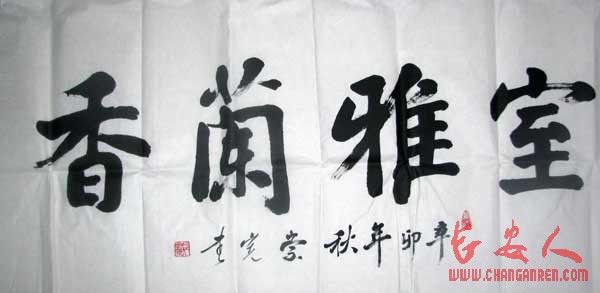 室雅蘭香
辛卯年秋崇寬書
长安人
www.CHANGANREN.com